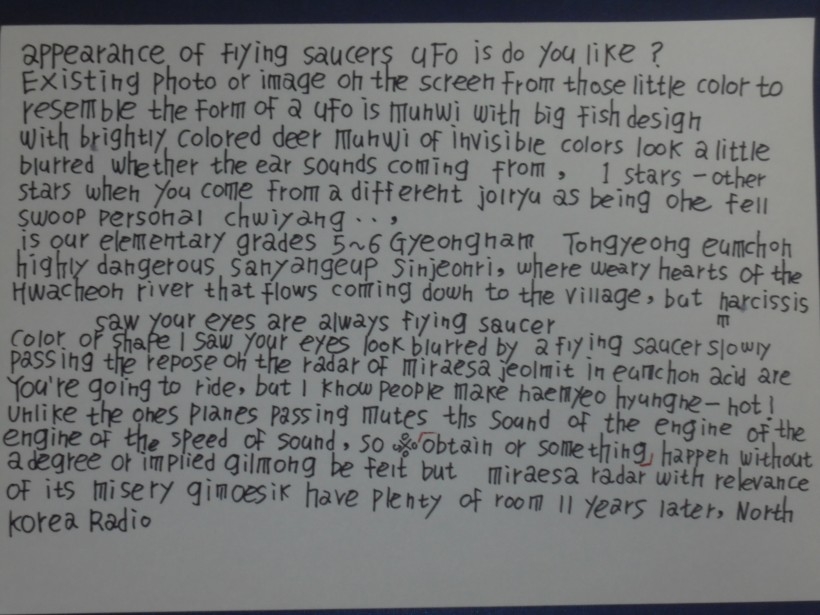 appearance of flying saucers UFO is do you like ?
Existing photo or image on the screen from those little color to
resemble the form of a UFO is munwi with big fish design
with brightly colored deer munwi of invisible colors look a little
blurred whether the ear sounds coming from , 1 stars - other
stars when you come from a different jolryu as being one fell
swoop personal chwiyang . . ,
is our elementary grades 5~6 Gyeongnam Tongyeong eumchon
highly dangerous sanyangeup sinjeonri, where weary hearts of the
Hwacheon river that flows coming down to the village, but narcissis
m
saw your eyes are always flying saucer
color or shape I saw your eyes look blurred by a flying saucer slowly
passing the repose on the radar of miraesa jeolmit in eumchon acid are
You're going to ride, but I know people make haemyeo hyungne - hot !
unlike the ones planes passing mutes ths sound of the engine of the
engine of the speed of sound, so obtain or something, happen without
a degree or implied gilmong be felt but miraesa radar with relevance
of its misery gimoesik have plenty of room 11 years later, North
Korea Radio